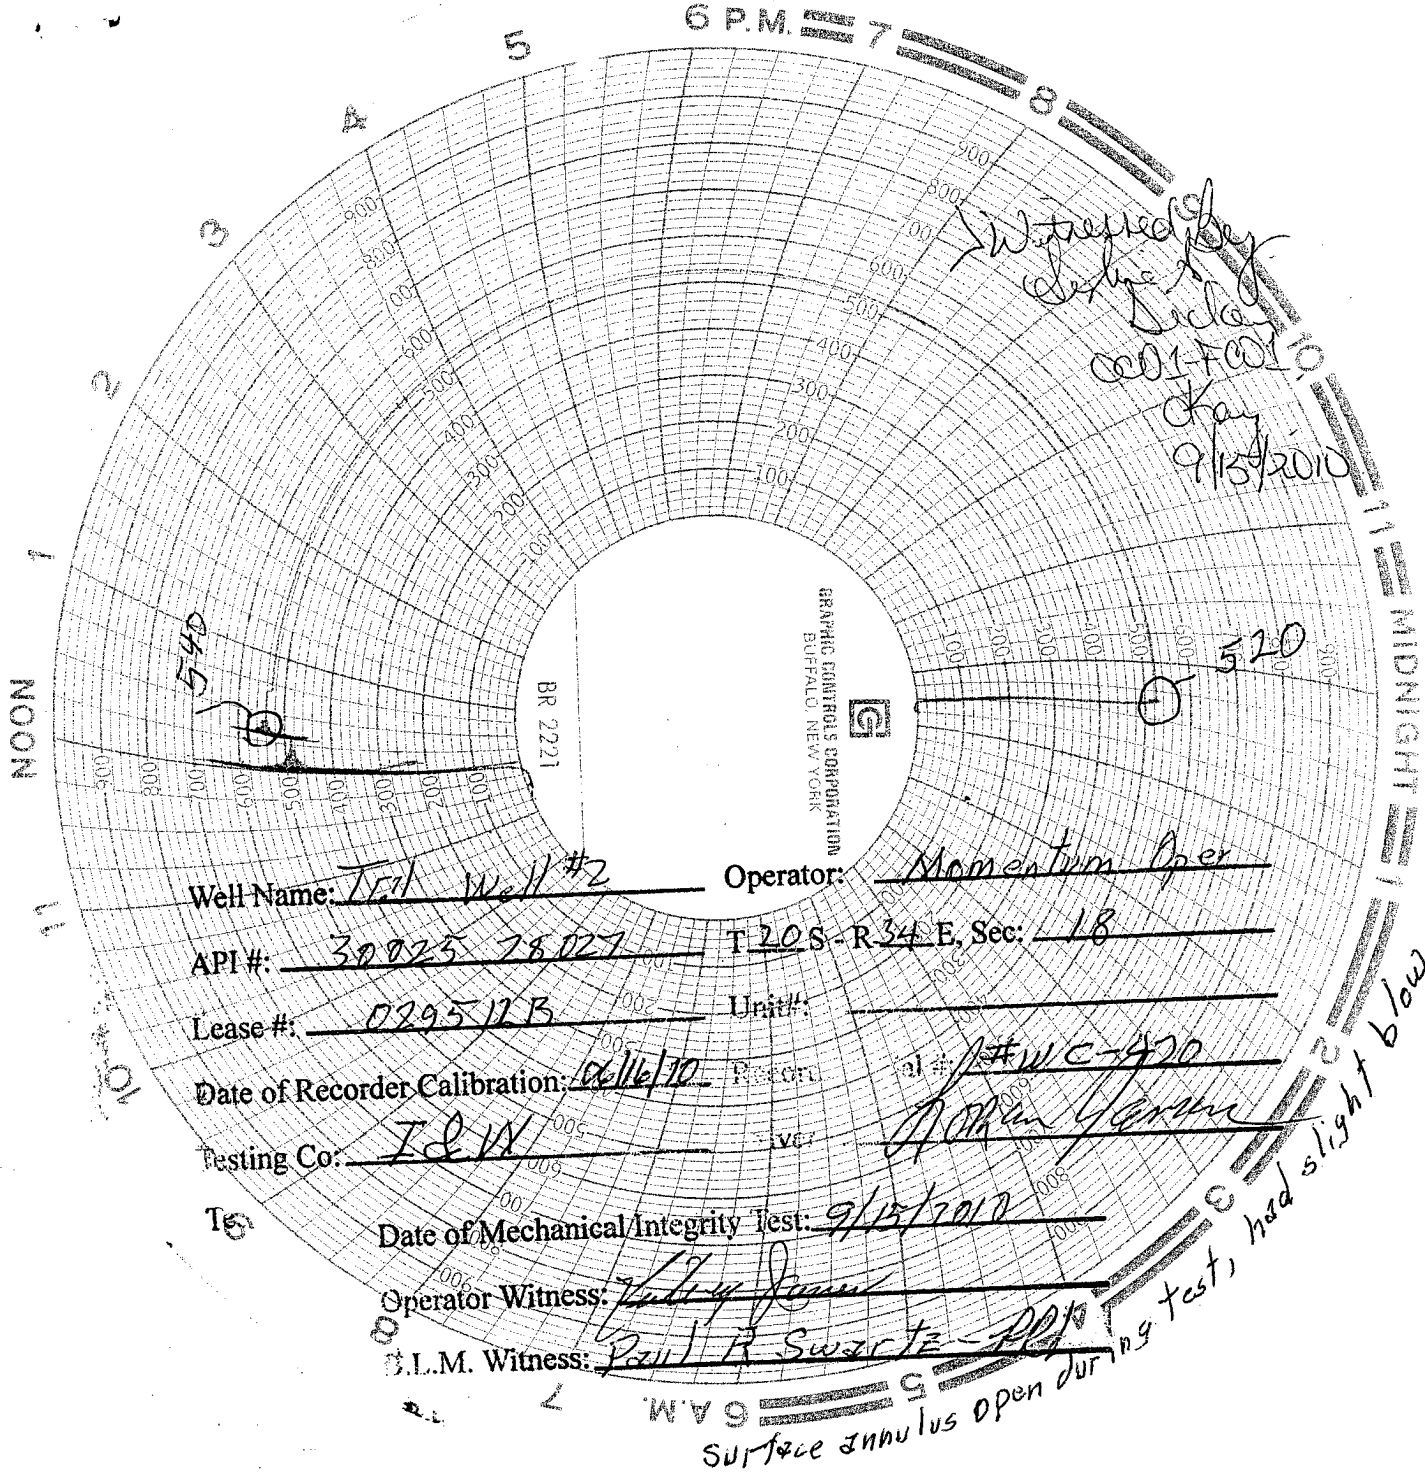 6 P.M.
7
8
9
10
11
MIDNIGHT
1
2
3
5
6 A.M.
7
8
9
10
11
NOON
1
2
3
4
5
900
800
700
600
500
400
300
200
100
900
800
700
600
500
400
300
200
100
Witnessed by
9/15/2010
540
520
100
200
300
400
500
600
900
900
800
700
600
500
400
300
200
100
BR 2221
GRAPHIC CONTROLS CORPORATION
BUFFALO, NEW YORK
G
Well Name: Well #2
Operator: Momentum Oper
API #: 30025 28027
T 20 S - R 34 E, Sec: 18
Lease #: 029512B
Unit#:
Date of Recorder Calibration: 06/16/10
#WC-420
Testing Co: I & W
Date of Mechanical/Integrity Test: 9/15/2010
Operator Witness:
B.L.M. Witness: Paul R Swartz - PET
Surface annulus open during test, had slight blow